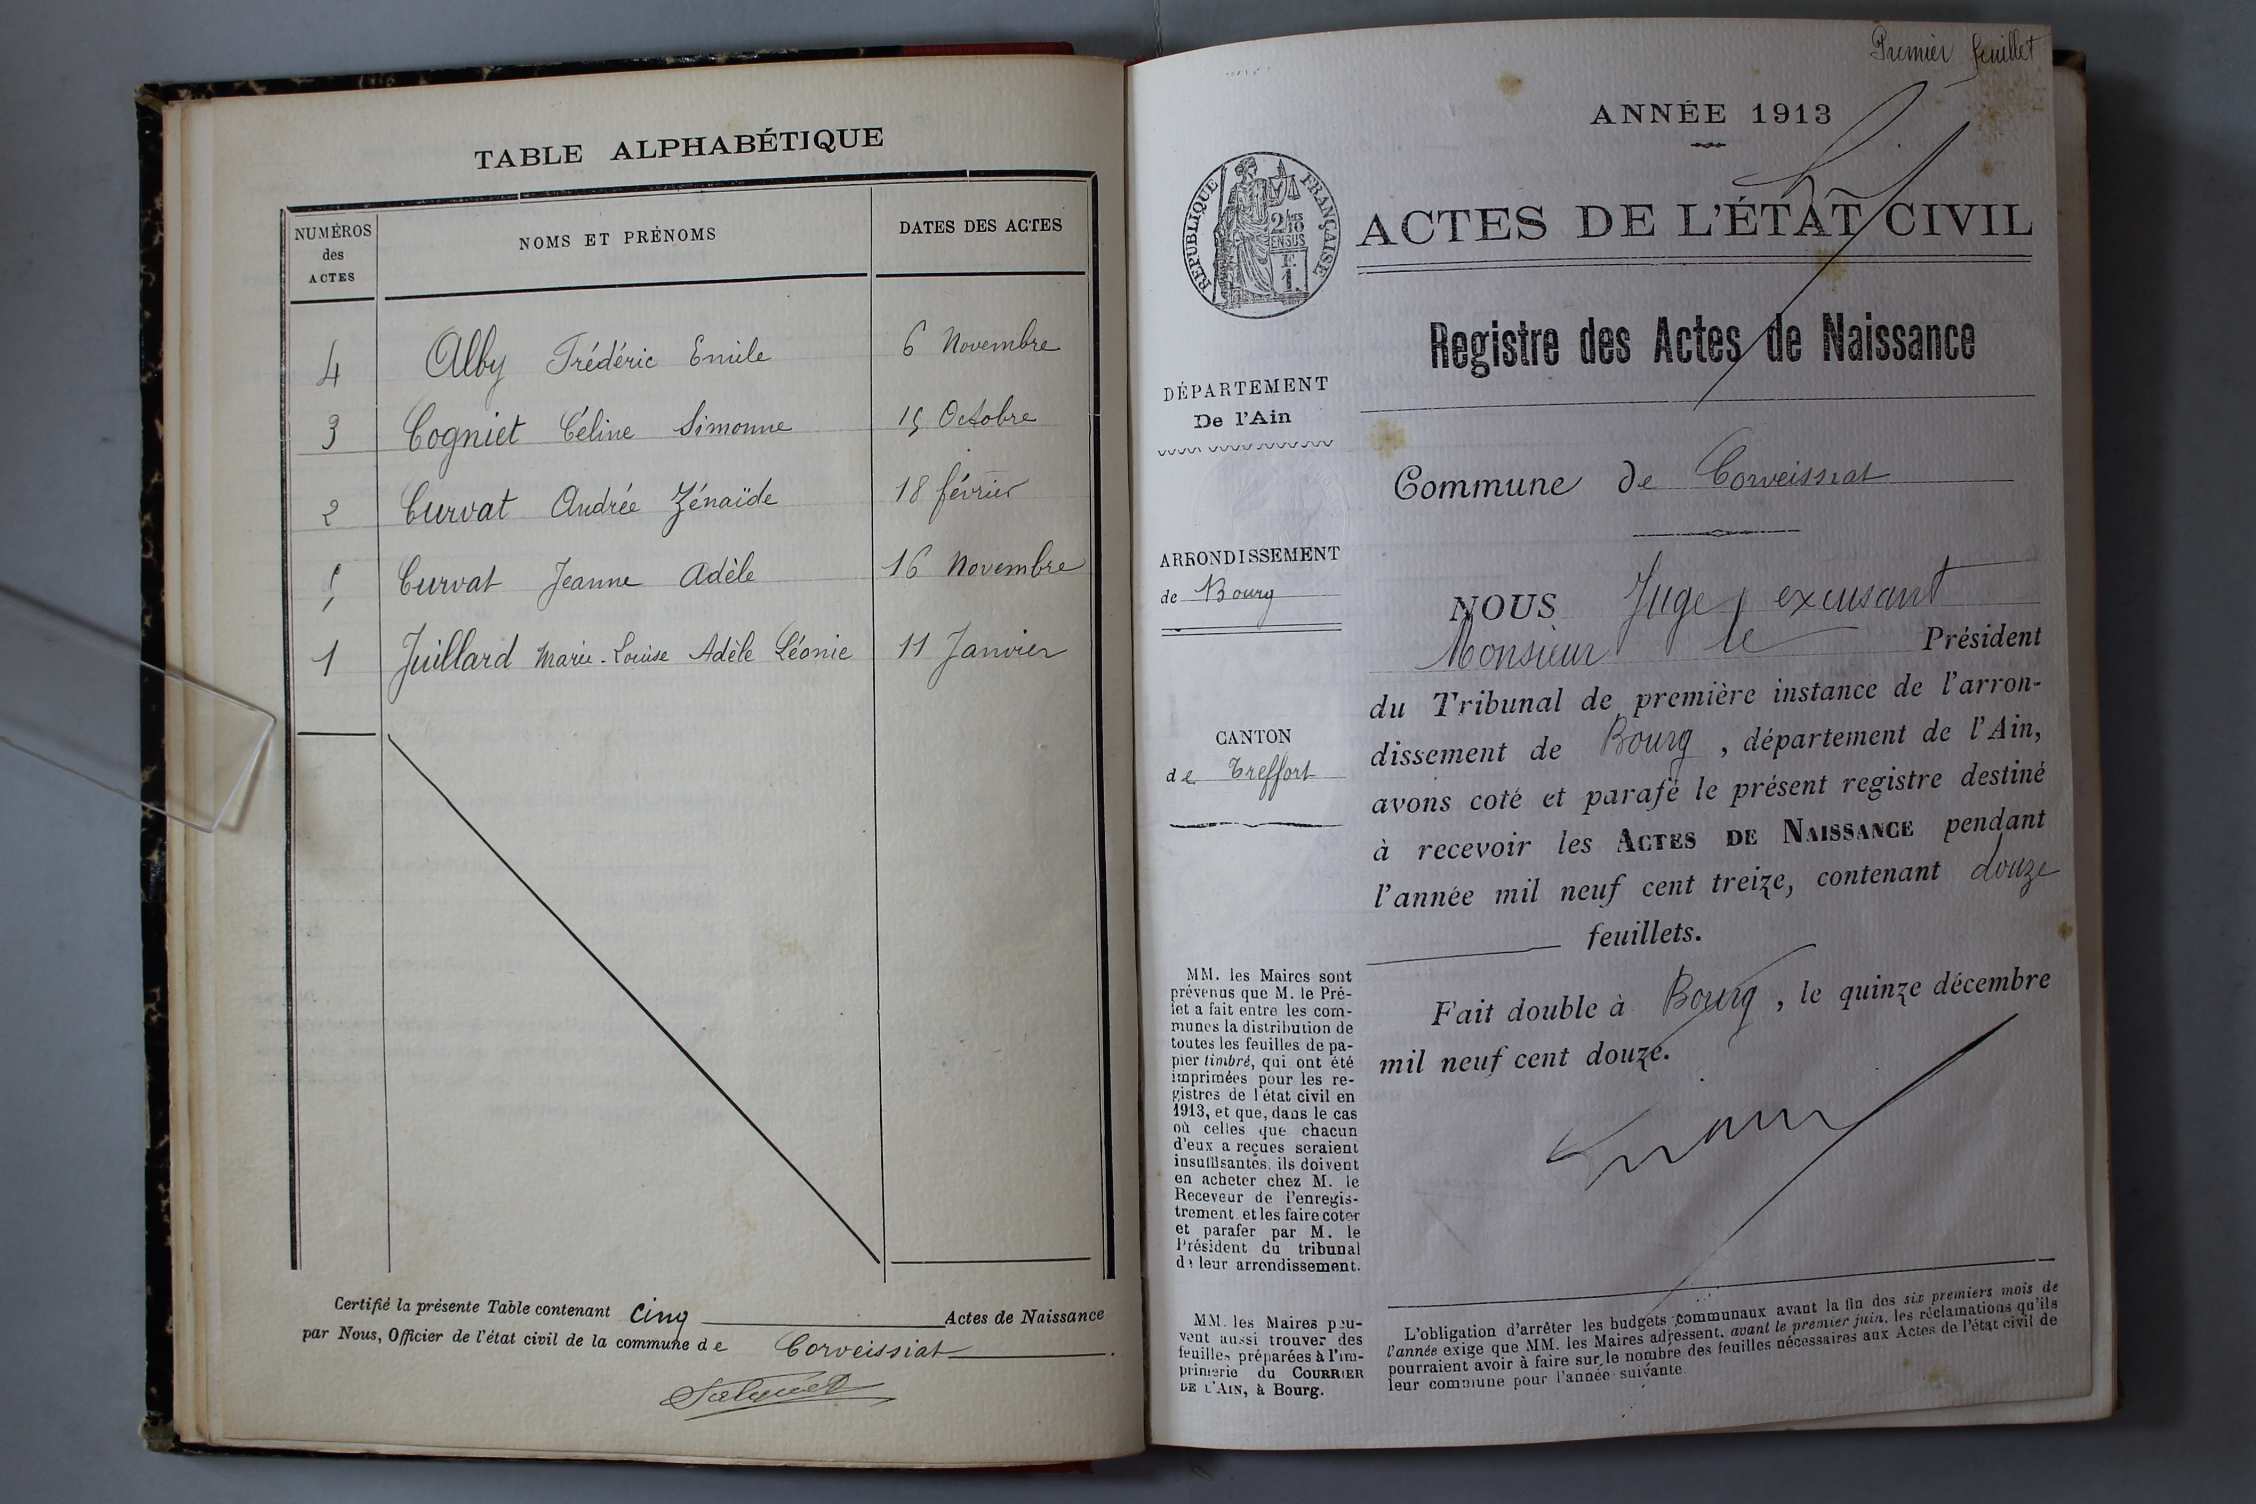 TABLE ALPHABÉTIQUE
NUMÉROS
des
ACTES
NOMS ET PRÉNOMS
DATES DES ACTES
4 Alby Frédéric Emile 6 Novembre
3 Cogniet Céline Simonne 15 Octobre
2 Curvat Andrée Zénaïde 18 février
5 Curvat Jeanne Adèle 16 Novembre
1 Juillard Marie-Louise Adèle Léonie 11 Janvier
Certifié la présente Table contenant cinq Actes de Naissance
par Nous, Officier de l'état civil de la commune de Corveissiat
Premier feuillet
ANNÉE 1913
RÉPUBLIQUE FRANÇAISE
2/10
EN SUS
F.
1.
ACTES DE L'ÉTAT CIVIL
Registre des Actes de Naissance
DÉPARTEMENT
De l'Ain
Commune de Corveissiat
ARRONDISSEMENT
de Bourg
CANTON
de Treffort
NOUS Juge, excusant
Monsieur le Président
du Tribunal de première instance de l'arron-
dissement de Bourg, département de l'Ain,
avons coté et parafé le présent registre destiné
à recevoir les ACTES DE NAISSANCE pendant
l'année mil neuf cent treize, contenant douze
feuillets.
Fait double à Bourg, le quinze décembre
mil neuf cent douze.
MM. les Maires sont
prévenus que M. le Pré-
fet a fait entre les com-
munes la distribution de
toutes les feuilles de pa-
pier timbré, qui ont été
imprimées pour les re-
gistres de l'état civil en
1913, et que, dans le cas
où celles que chacun
d'eux a reçues seraient
insuffisantes, ils doivent
en acheter chez M. le
Receveur de l'enregis-
trement et les faire coter
et parafer par M. le
Président du tribunal
de leur arrondissement.
MM. les Maires peu-
vent aussi trouver des
feuilles préparées à l'im-
primerie du COURRIER
DE L'AIN, à Bourg.
L'obligation d'arrêter les budgets communaux avant la fin des six premiers mois de
l'année exige que MM. les Maires adressent, avant le premier juin, les réclamations qu'ils
pourraient avoir à faire sur le nombre des feuilles nécessaires aux Actes de l'état civil de
leur commune pour l'année suivante.